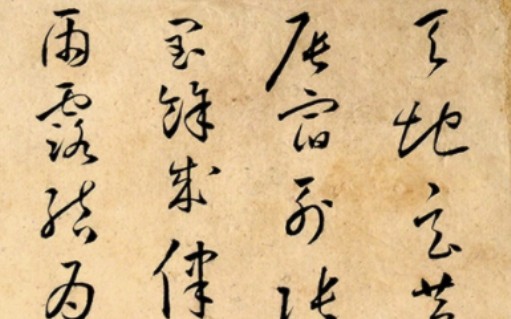 天地玄黃
辰宿列張
閏餘成律
雨露結為